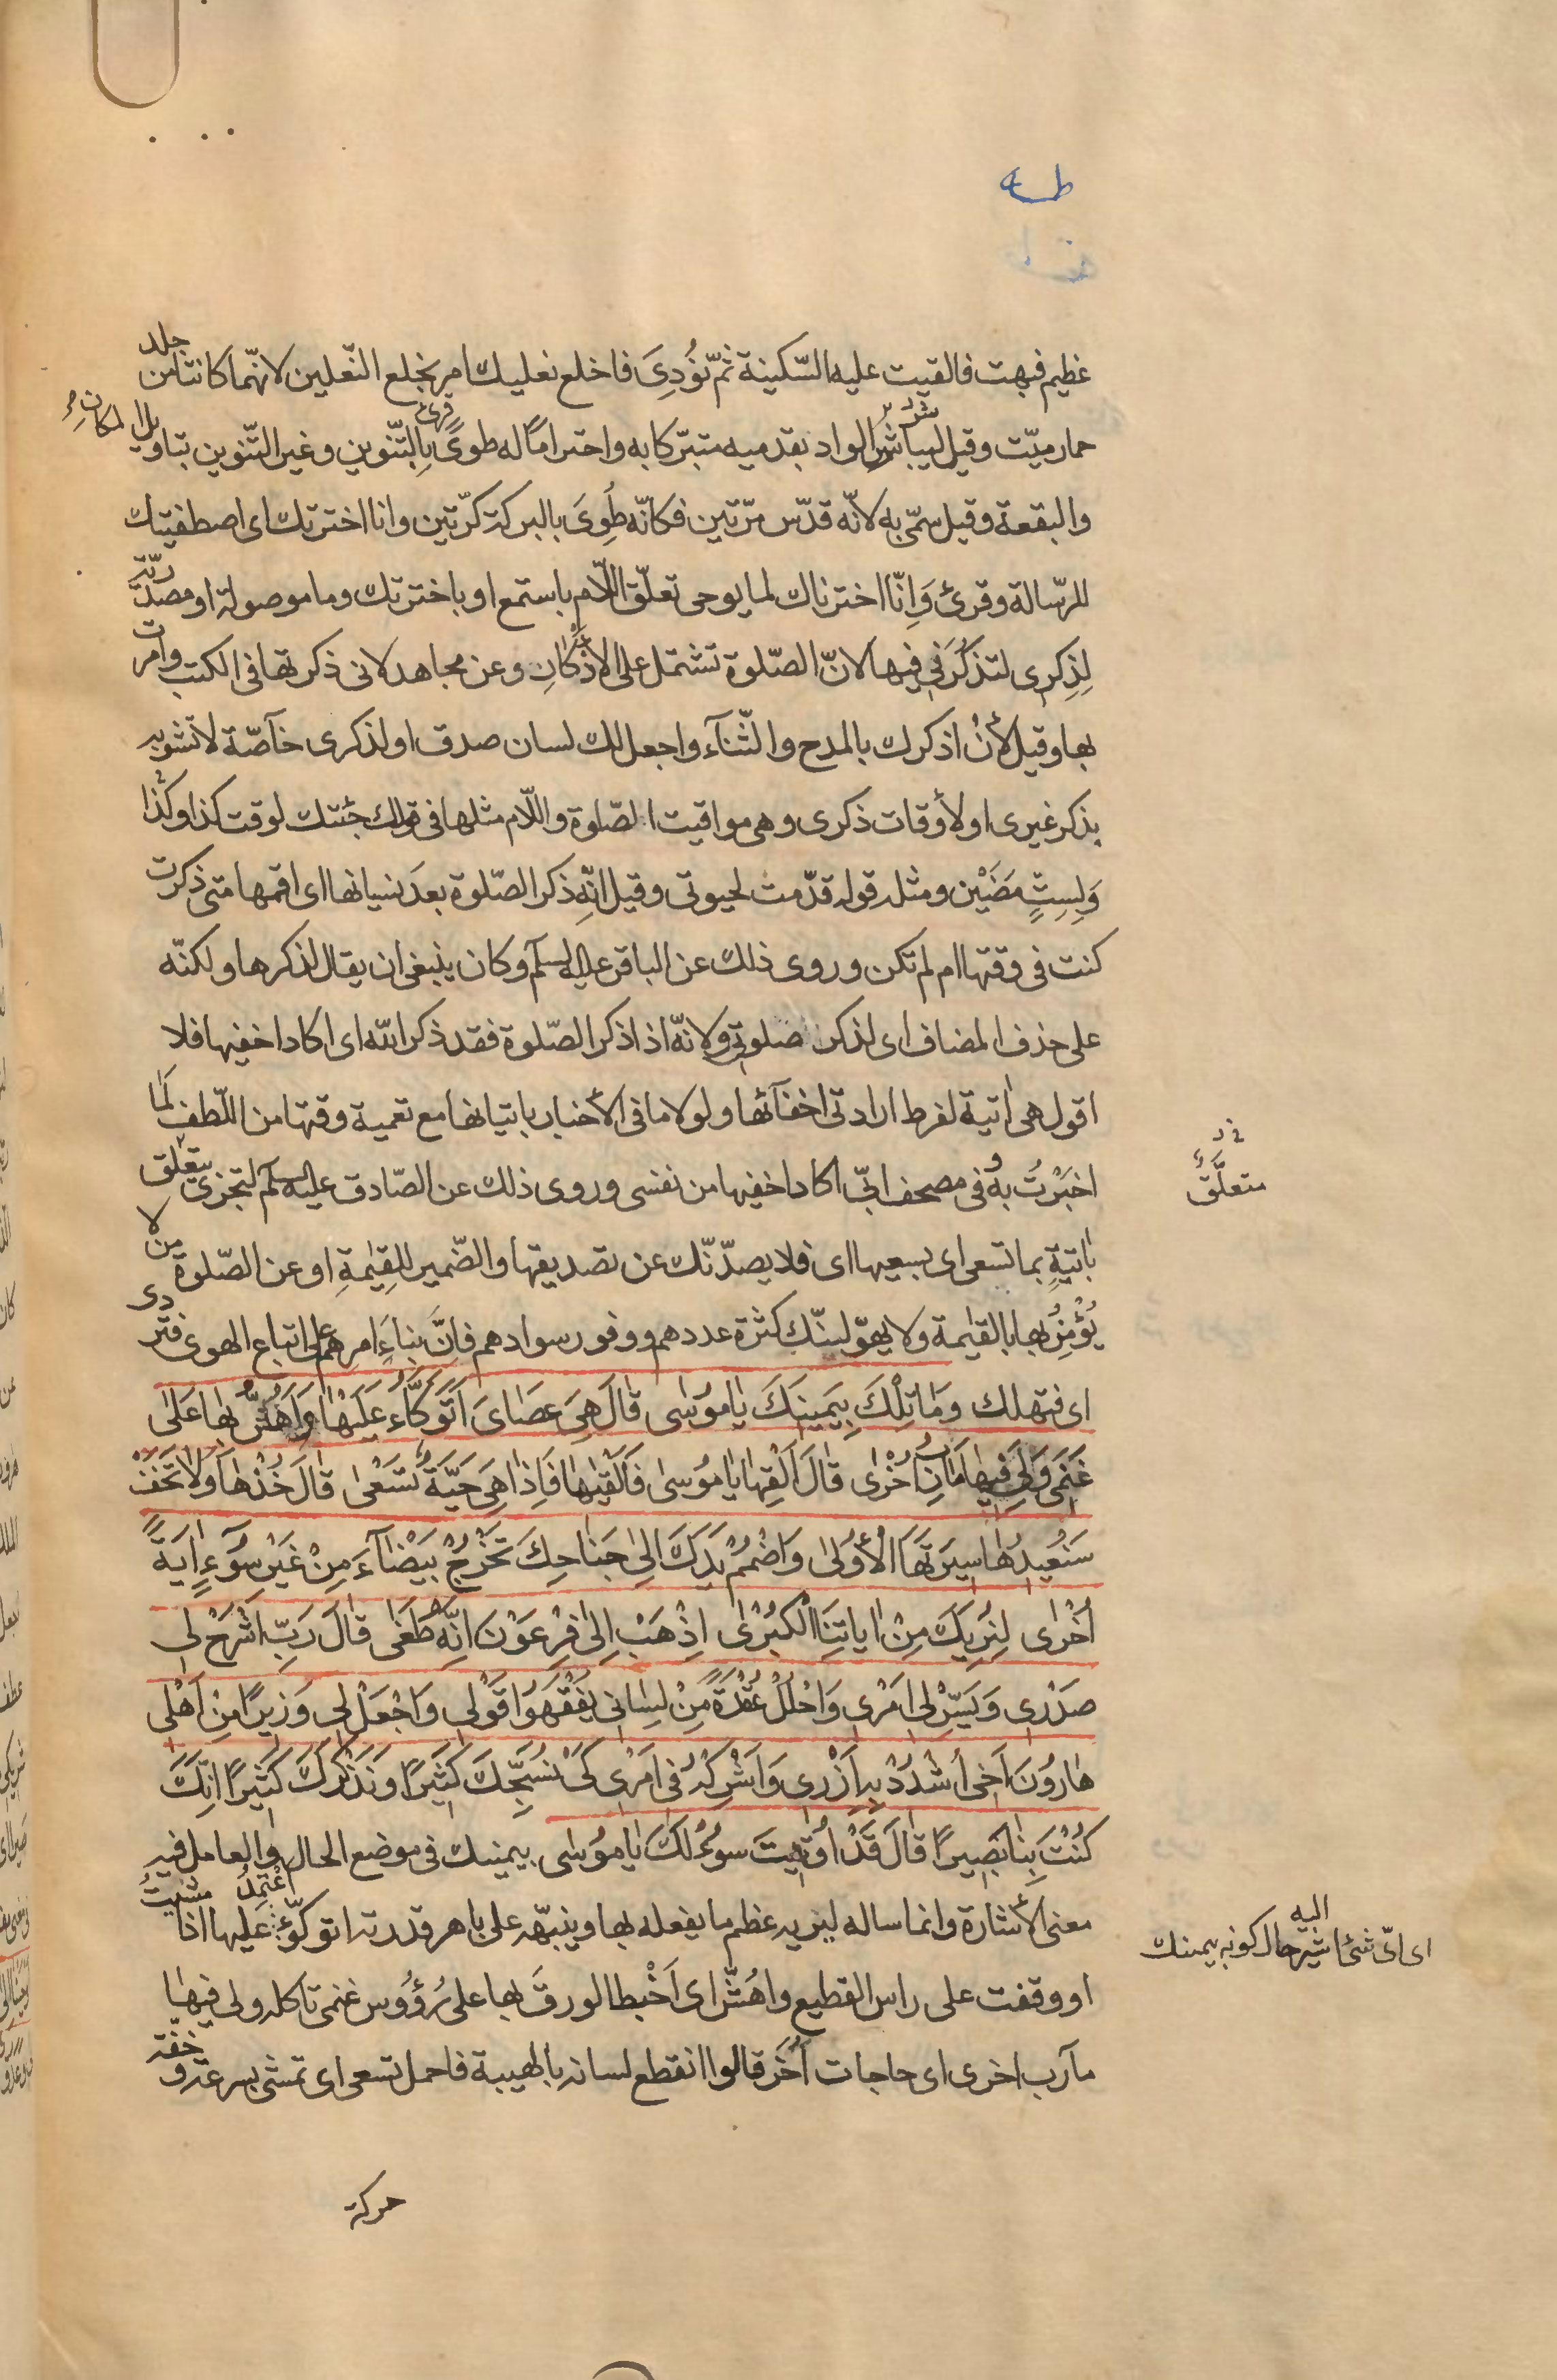 طه
عظيم فبهت فالقيت عليه السّكينة ثمّ نُودِىَ فاخلع نعليك امر بخلع النّعلين لانّهما كانتا من جلد
حمار ميّت وقيل ليباشر الواد بقدميه متبرّكا به واحتراماً له طوىً قرئ بِالتّنوين وغير التّنوين بتاويل المكان
والبقعة وقيل سمّى به لانّه قدّس مرّتين فكانّه طُوِىَ بالبركة كرّتين وانا اخترتك اى اصطفيتك
للرّسالة وقرئ وَاِنّا اخترناك لما يوحى تعلّق اللّام باستمع او باخترتك وما موصولة او مصدريّة
لِذِكرى لتذكُرَنى فيها لانّ الصّلوة تشتمل على الاذكارِ وعن مجاهد لانى ذكرتها فى الكتب وامرت
بها وقيل لأنْ اذكرك بالمدح والثّنآء واجعل لك لسان صدق او لذكرى خآصّة لا تشوبه
بذكر غيرى او لأوقات ذكرى وهى مواقيت الصّلوة واللّام مثلها فى قولك جئتك لوقت كذا وكذا
وَلِسِتٍّ مَضَيْن ومثله قوله قدّمت لحيوتى وقيل انّه ذكر الصّلوة بعدَ نسيانها اى اقمها متى ذكرت
كنت فى وقتها ام لم تكن وروى ذلك عن الباقر عليه السلم وكان ينبغى ان يقال لذكرها ولكنّه
على حذف المضاف اى لذكر صلوتى ولانّه اذا ذكر الصّلوة فقد ذكر الله اى اكاد اخفيها فلا
اقول هى اتية لفرط ارادتى اخفآئها ولولا ما فى الأخبار باتيانها مع تعمية وقتها من اللّطف لما
اخبَرْتُ به وفى مصحف ابىّ اكاد اخفيها من نفسى وروى ذلك عن الصّادق عليه السلم لتجزى يتعلق
متعلّق
باتيةٍ بما تسعى اى بسعيها اى فلا يصدّنّك عن تصديقها والضّمير للقِيٰمةِ او عن الصّلوة من لا
يُؤْمِنُ بها بالقيٰمة ولا يهوّلينّك كثرة عددهم ووفور سوادهم فاِنَّ بناءَ امرهم على اتباع الهوى فتردى
اى فتهلك وَمَا تِلْكَ بِيَمينِكَ يٰا مُوسٰى قٰالَ هِىَ عَصَاىَ اَتَوَكَّأُ عَلَيْهٰا وَاَهُشُّ بِهٰا عَلىٰ
غَنَمى وَلِىَ فيهٰا مَاٰرِبُ اُخْرٰى قٰالَ اَلْقِهٰا يٰا مُوسٰى فَاَلْقٰيهٰا فَاِذٰا هِىَ حَيَّةٌ تَسْعٰى قٰالَ خُذْهٰا وَلاٰ تَخَفْ
سَنُعيدُهٰا سيرَتَهَا الْأُولىٰ وَاضْمُمْ يَدَكَ اِلىٰ جَنٰاحِكَ تَخْرُجْ بَيْضٰآءَ مِنْ غَيْرِ سُوٓءٍ اٰيَةً
اُخْرٰى لِنُرِيَكَ مِنْ اٰيٰاتِنَا الْكُبْرٰى اِذْهَبْ اِلىٰ فِرْعَوْنَ اِنَّهُ طَغٰى قٰالَ رَبِّ اشْرَحْ لى
صَدْرى وَيَسِّرْ لى اَمْرى وَاحْلُلْ عُقْدَةً مِنْ لِسٰانى يَفْقَهُوا قَوْلى وَاجْعَلْ لى وَزيرًا مِنْ اَهْلى
هٰارُونَ اَخى اُشْدُدْ بِهِ اَزْرى وَاَشْرِكْهُ فى اَمْرى كَىْ نُسَبِّحَكَ كَثيرًا وَنَذْكُرَكَ كَثيرًا اِنَّكَ
كُنْتَ بِنٰا بَصيرًا قٰالَ قَدْ اُوتيتَ سُؤْلَكَ يٰا مُوسٰى بيمينك فى موضع الحال والعامل فيه
معنى الأشارة وانما ساله ليزيه عظم ما يفعله بها وينبّهه على باهر قدرته اتوكّؤ عليها اعتمد اذا مشيت
اى اىّ شئ اشير اليه حال كونه بيمينك
او وقفت على راس القطيع واهُشّ اى اَخْبط الورقَ بها على رُؤُوس غنمى تاكله ولى فيهٰا
مآرب اخرى اى حاجات اُخَر قالوا انقطع لسانه بالهيبة فاجمل تسعى اى تمشى بسرعة وخفّة
حركة